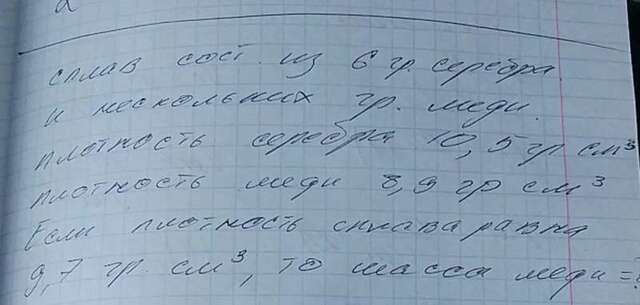 сплав сост. из 6 гр. серебра
и нескольких гр. меди.
плотность серебра 10,5 гр см³
плотность меди 8,9 гр см³
Если плотность сплава равна
9,7 гр. см³, то масса меди =?